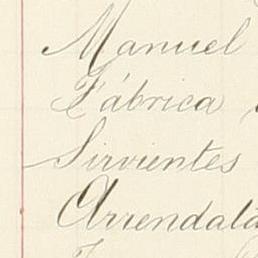 Manuel
Fábrica
Sirvientes
Arrendata